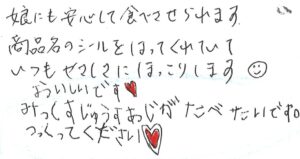 娘にも安心して食べさせられます
商品名のシールをはってくれていて
いつもやさしさにほっこりします☺
おいしいです♥
みっくすじゅうすあじがたべたいです。
つくってください♥